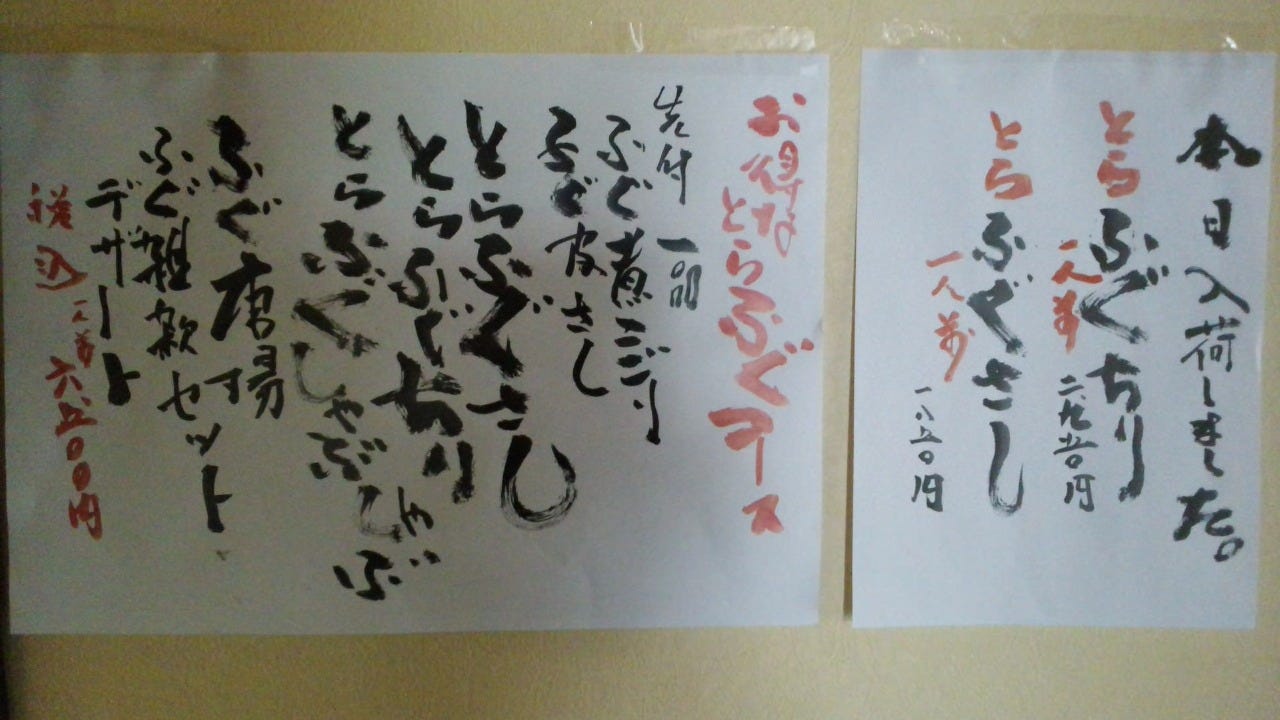 本日入荷しました。
とらふぐちり
一人前
二九五〇円
とらふぐさし
一人前
一八五〇円
お得な
とらふぐコース
先付一品
ふぐ煮こごり
ふぐ皮さし
とらふぐさし
とらふぐちり
とらふぐしゃぶしゃぶ
ふぐ唐揚す
ふぐ雑炊セット
デザート
税込一人前六、五〇〇円